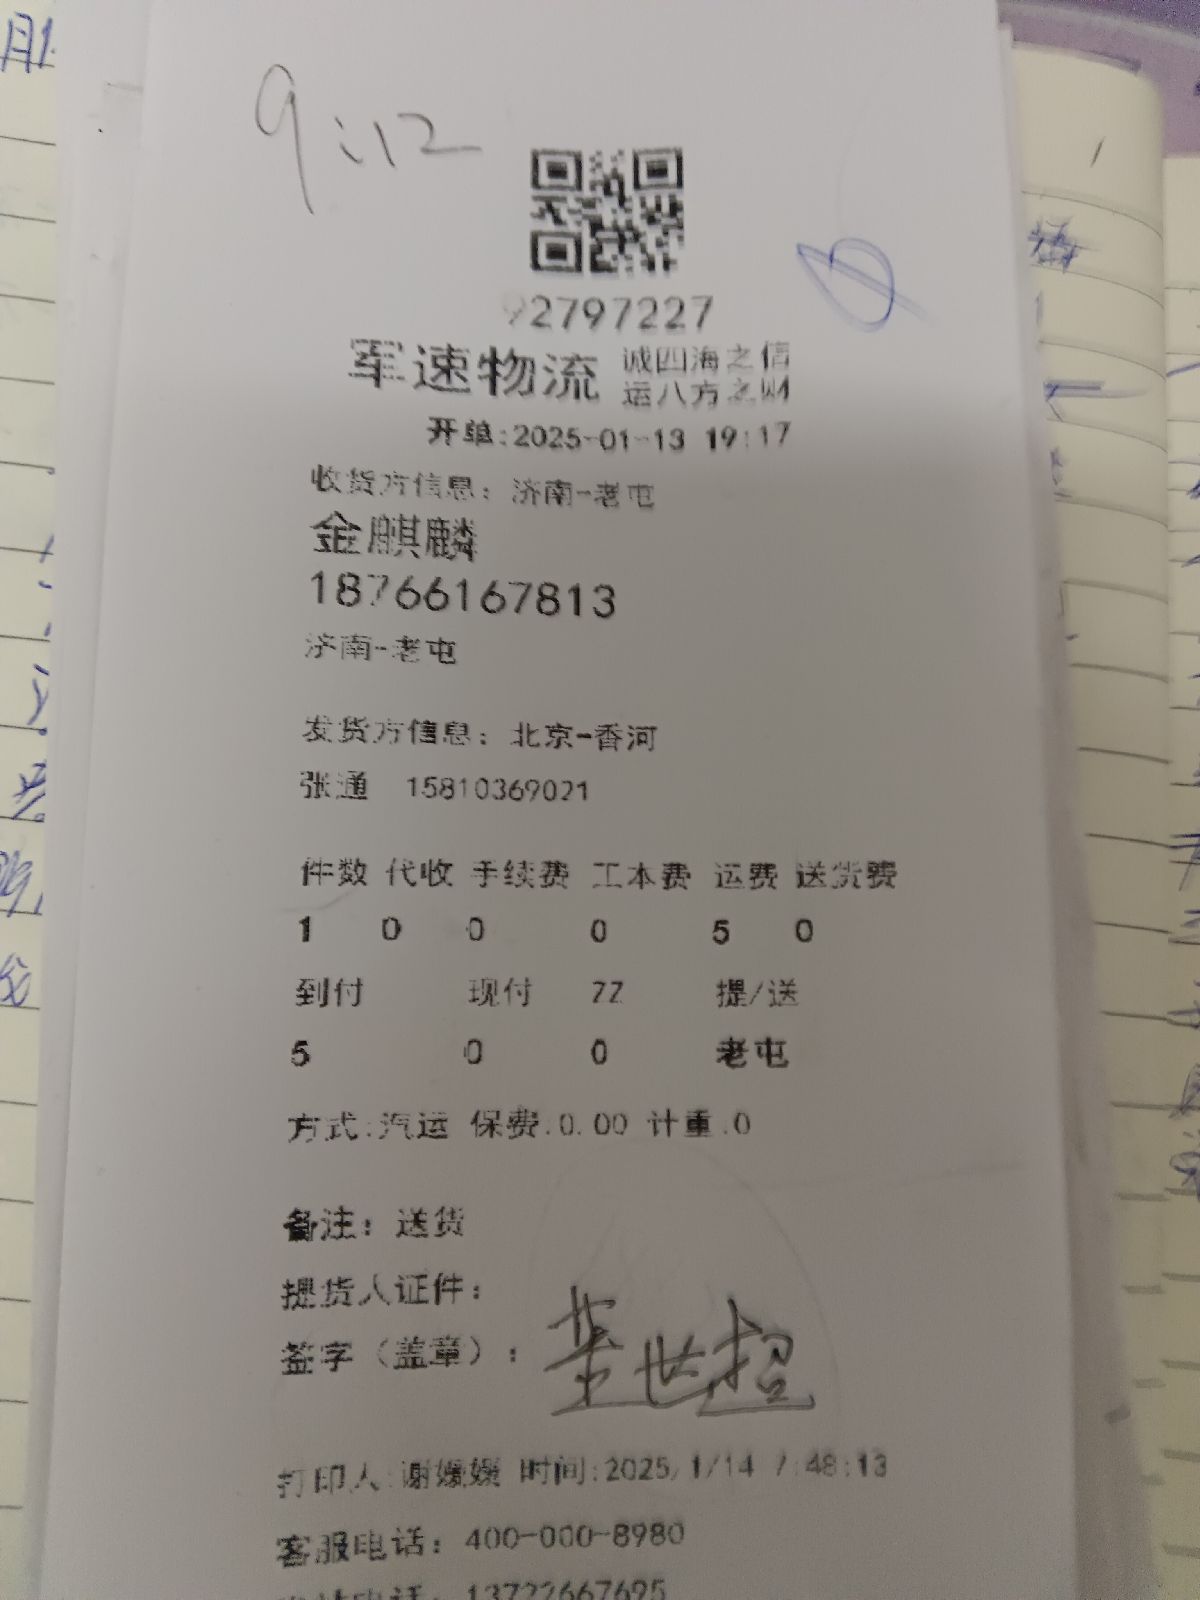 9:12
92797227
军速物流 诚四海之信
运八方之财
开单:2025-01-13 19:17
收货方信息：济南-老屯
金麒麟
18766167813
济南-老屯
发货方信息：北京-香河
张通 15810369021
件数 代收 手续费 工本费 运费 送货费
1 0 0 0 5 0
到付 现付 ZZ 提/送
5 0 0 老屯
方式:汽运 保费:0.00 计重:0
备注：送货
提货人证件：
签字（盖章）：
打印人:谢媛媛 时间:2025/1/14 7:48:13
客服电话：400-000-8980
电话：13722667695